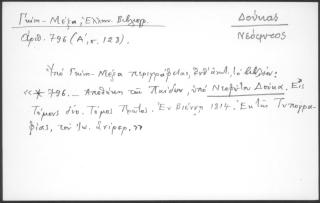 Γκίνη - Μέξα, Ἑλλην. Βιβλιογρ.
Δούκας
Ἀριθ. 796 (Α΄, σ. 123).
Νεόφυτος
Ὑπὸ Γκίνη - Μέξα περιγράφεται, τὸ βιβλίον:
«* 796. — Ἀποθήκη τῶν Παίδων, ὑπὸ Νεοφύτου Δούκα. Εἰς
Τόμους δύο. Τόμος Πρῶτος. Ἐν Βιέννῃ 1814. Ἐκ τῆς Τυπογρα-
φίας, τοῦ Ἰω. Σνίρερ.»